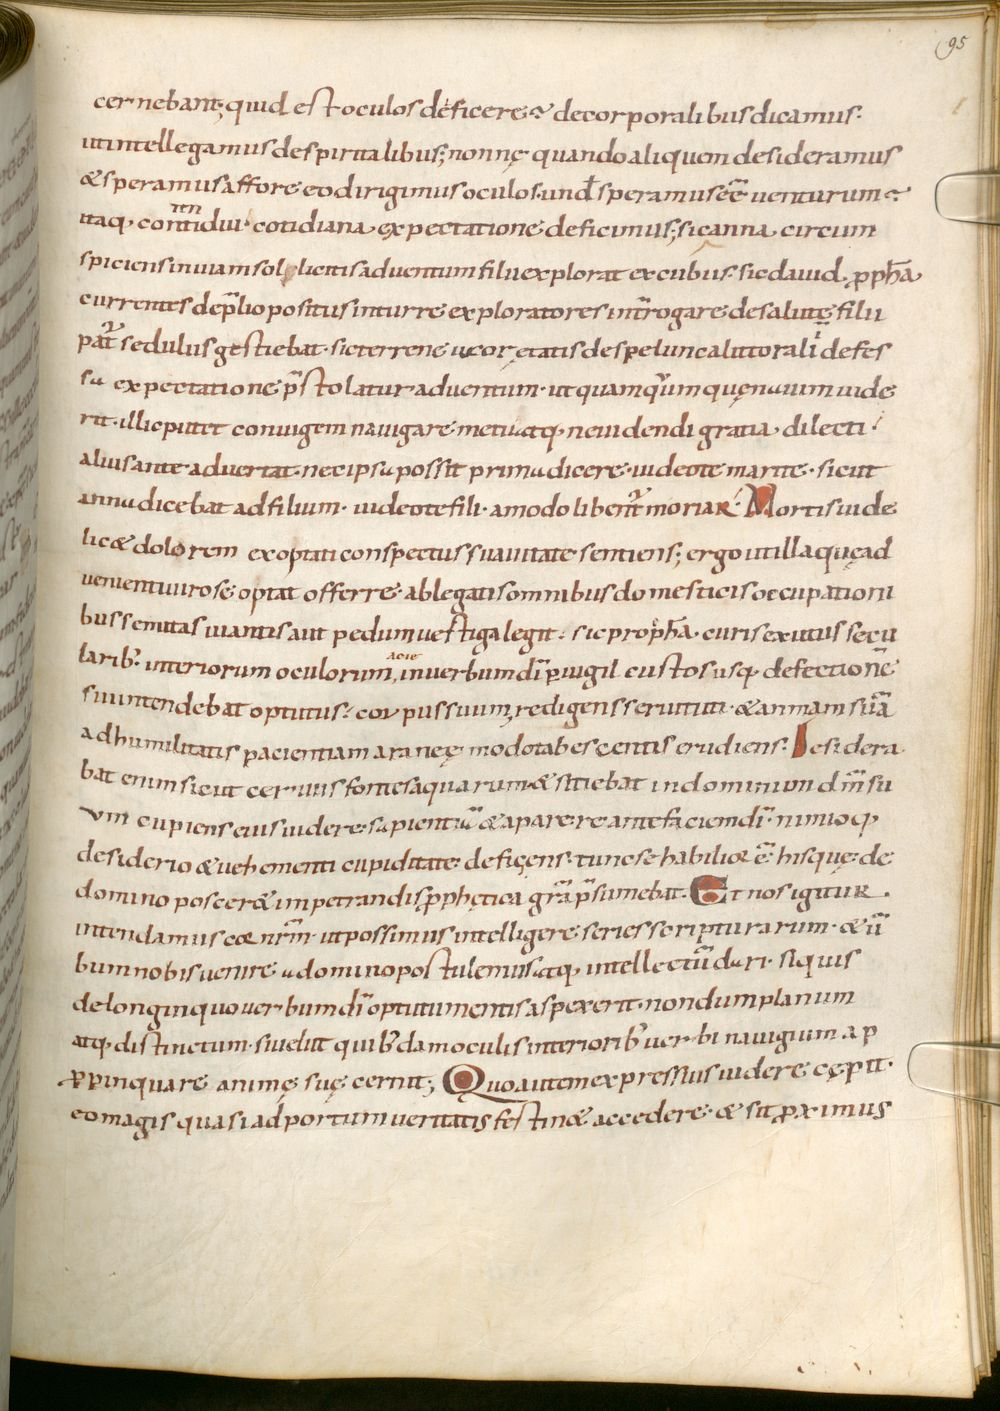 95
cernebant; quid est oculos deficere? de corporalibus dicamus.
ut intellegamus de spiritalibus; nonnę quando aliquem desideramus
& speramus affore eo dirigimus oculos und̄ speramus eē venturum?
itaq; continui cotidiana expectatione deficimus; sic anna circum
spiciens in viam sollicitis adventum filii explorat excubiis. sic dauid ꝓph̄a
currentes de p̄lio positus in turre exploratores int̄rogare de salute filii
pat̄ sedulus gestiebat. sic terrene uxor ętatis de spelunca littorali defes
sa expectatione p̄stolatur adventum. ut quamq̄um quę nauim uide
rit. illic putet coniugem nauigare metuatq; ne uidendi gratia dilecti.
alius ante advertat. nec ipsa possit prima dicere. uideo te marite. sicut
anna dicebat ad filium. uideo te fili. amodo liben̄t moriar. Mortis uide
lic& dolorem exoptati conspectus suauitate sentiens; ergo ut illa quę ad
uenienti uiro se optat offerre. ablegatis omnibus domesticis occupationi
bus semitas uiantis aut pedum uestigia legit. sic proph̄a. curis exutus secu
larib; interiorum oculorum acie in uerbum dī ꝑuigil custos usq; defectionē
sui intendebat optutus. corpus suum redigens seruituti. & animam suā
ad humilitatis pacientiam araneę modo tabescentis erudiens. Desidera
bat enim sicut ceruus fontes aquarum & sitiebat in dominum dm̄ su
um cupiens eius uidere sapientiā & apparere ante faciem dī. nimioq;
desiderio & uehementi cupiditate deficiens. tunc se habilior ē hisquę de
domino poscer& impetrandis ꝓphętica grā p̄sumebat. Et nos igitur.
intendamus cor nr̄m. ut possimus intelligere series scripturarum. & ū
bum nobis uenire a domino postulemus. atq; intellectum dari. siquis
de longinquo uerbum dī optutu mentis aspexerit. nondum planum
atq; distinctum. siuelut quibꝰdam oculis interiorib; uerbi nauigium ap
ꝓpinquare animę suę cernit; Quo autem expressius uidere cęperit.
eo magis quasi ad portum ueritatis festin& accedere. & sit ꝓximus